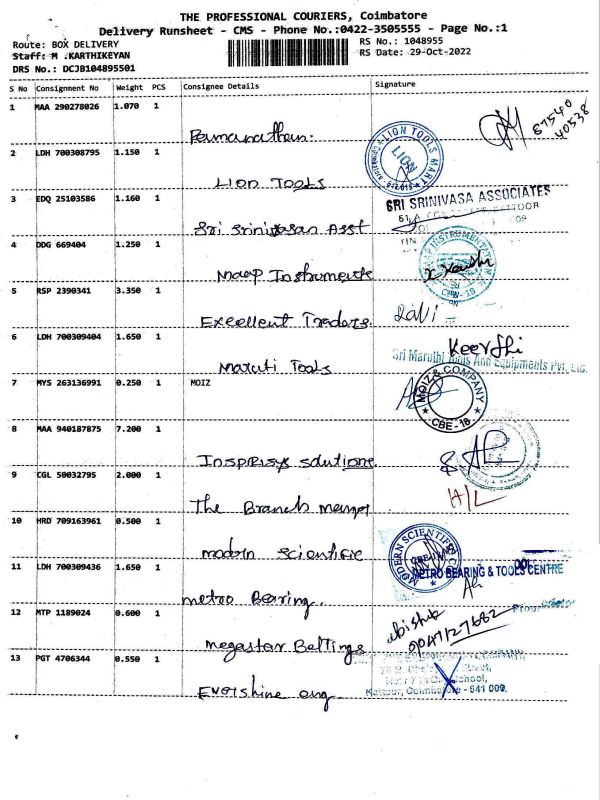 THE PROFESSIONAL COURIERS, Coimbatore
Delivery Runsheet - CMS - Phone No.:0422-3505555 - Page No.:1
Route: BOX DELIVERY RS No.: 1048955
Staff: M .KARTHIKEYAN RS Date: 29-Oct-2022
DRS No.: DCJB104895501
S No Consignment No Weight PCS Consignee Details Signature
1 MAA 290278026 1.070 1
67540
40538
2 LDH 700308795 1.150 1
LION TOOLS MART
LION
Lion Tools
3 EDQ 25103586 1.160 1
SRI SRINIVASA ASSOCIATES
Sri Srinivasan Asst
4 DDG 669404 1.250 1
Maap Instruments
5 RSP 2390341 3.350 1
Excellent Traders. Ravi
6 LDH 700309404 1.650 1
Keerthi
Sri Maruthi Tools And Equipments Pvt. Ltd.
Maruti Tools
7 MYS 263136991 0.250 1 MOIZ
MOIZ & COMPANY
CBE - 18
8 MAA 940187875 7.200 1
Inspirisys solutions
9 CGL 50032795 2.000 1
H/L
The Branch
10 HRD 709163961 0.500 1
MODERN SCIENTIFIC
modern scientific
11 LDH 700309436 1.650 1
METRO BEARING & TOOLS CENTRE
metro Bearing.
12 MTP 1189024 0.600 1
9047127682
megastar Beltings
13 PGT 4706344 0.550 1
Street,
School,
Kattoor, Coimbatore - 641 009.
Evershine eng